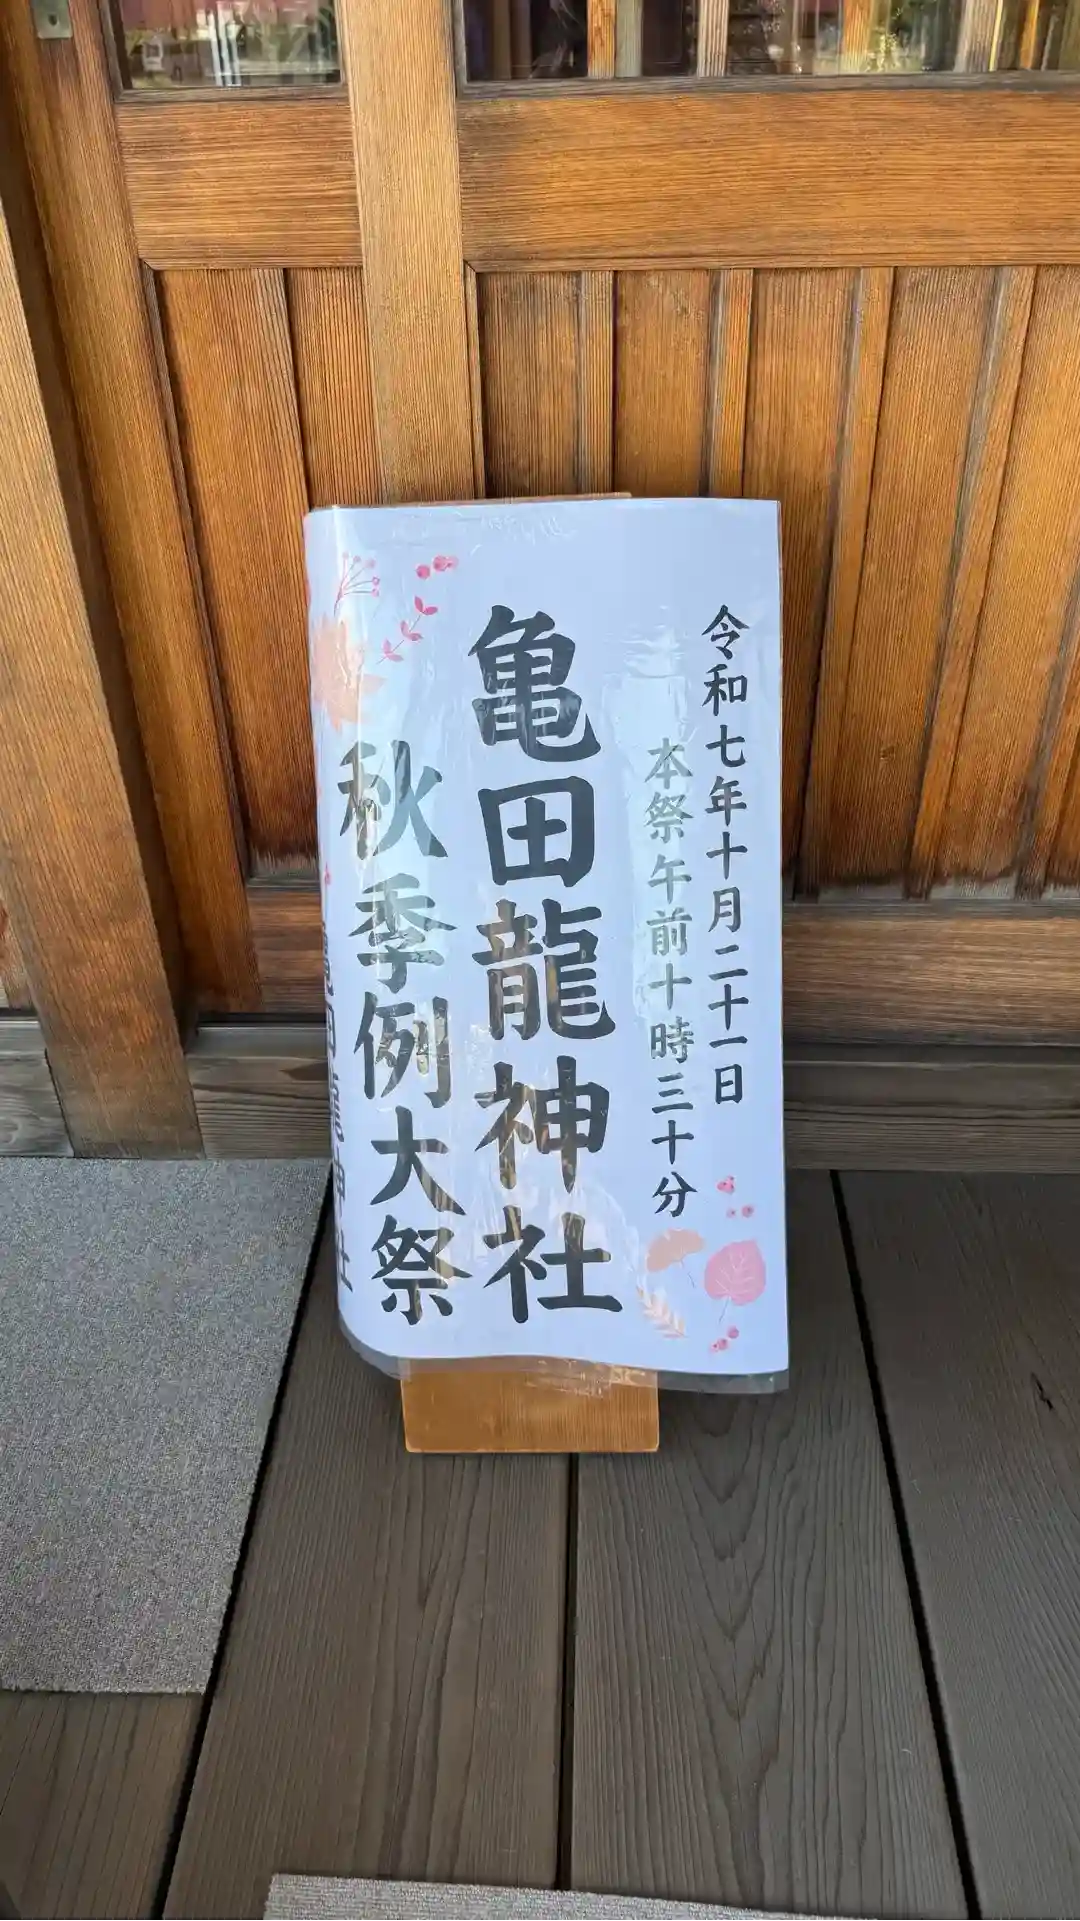 令和七年十月二十一日
本祭午前十時三十分
亀田龍神社
秋季例大祭